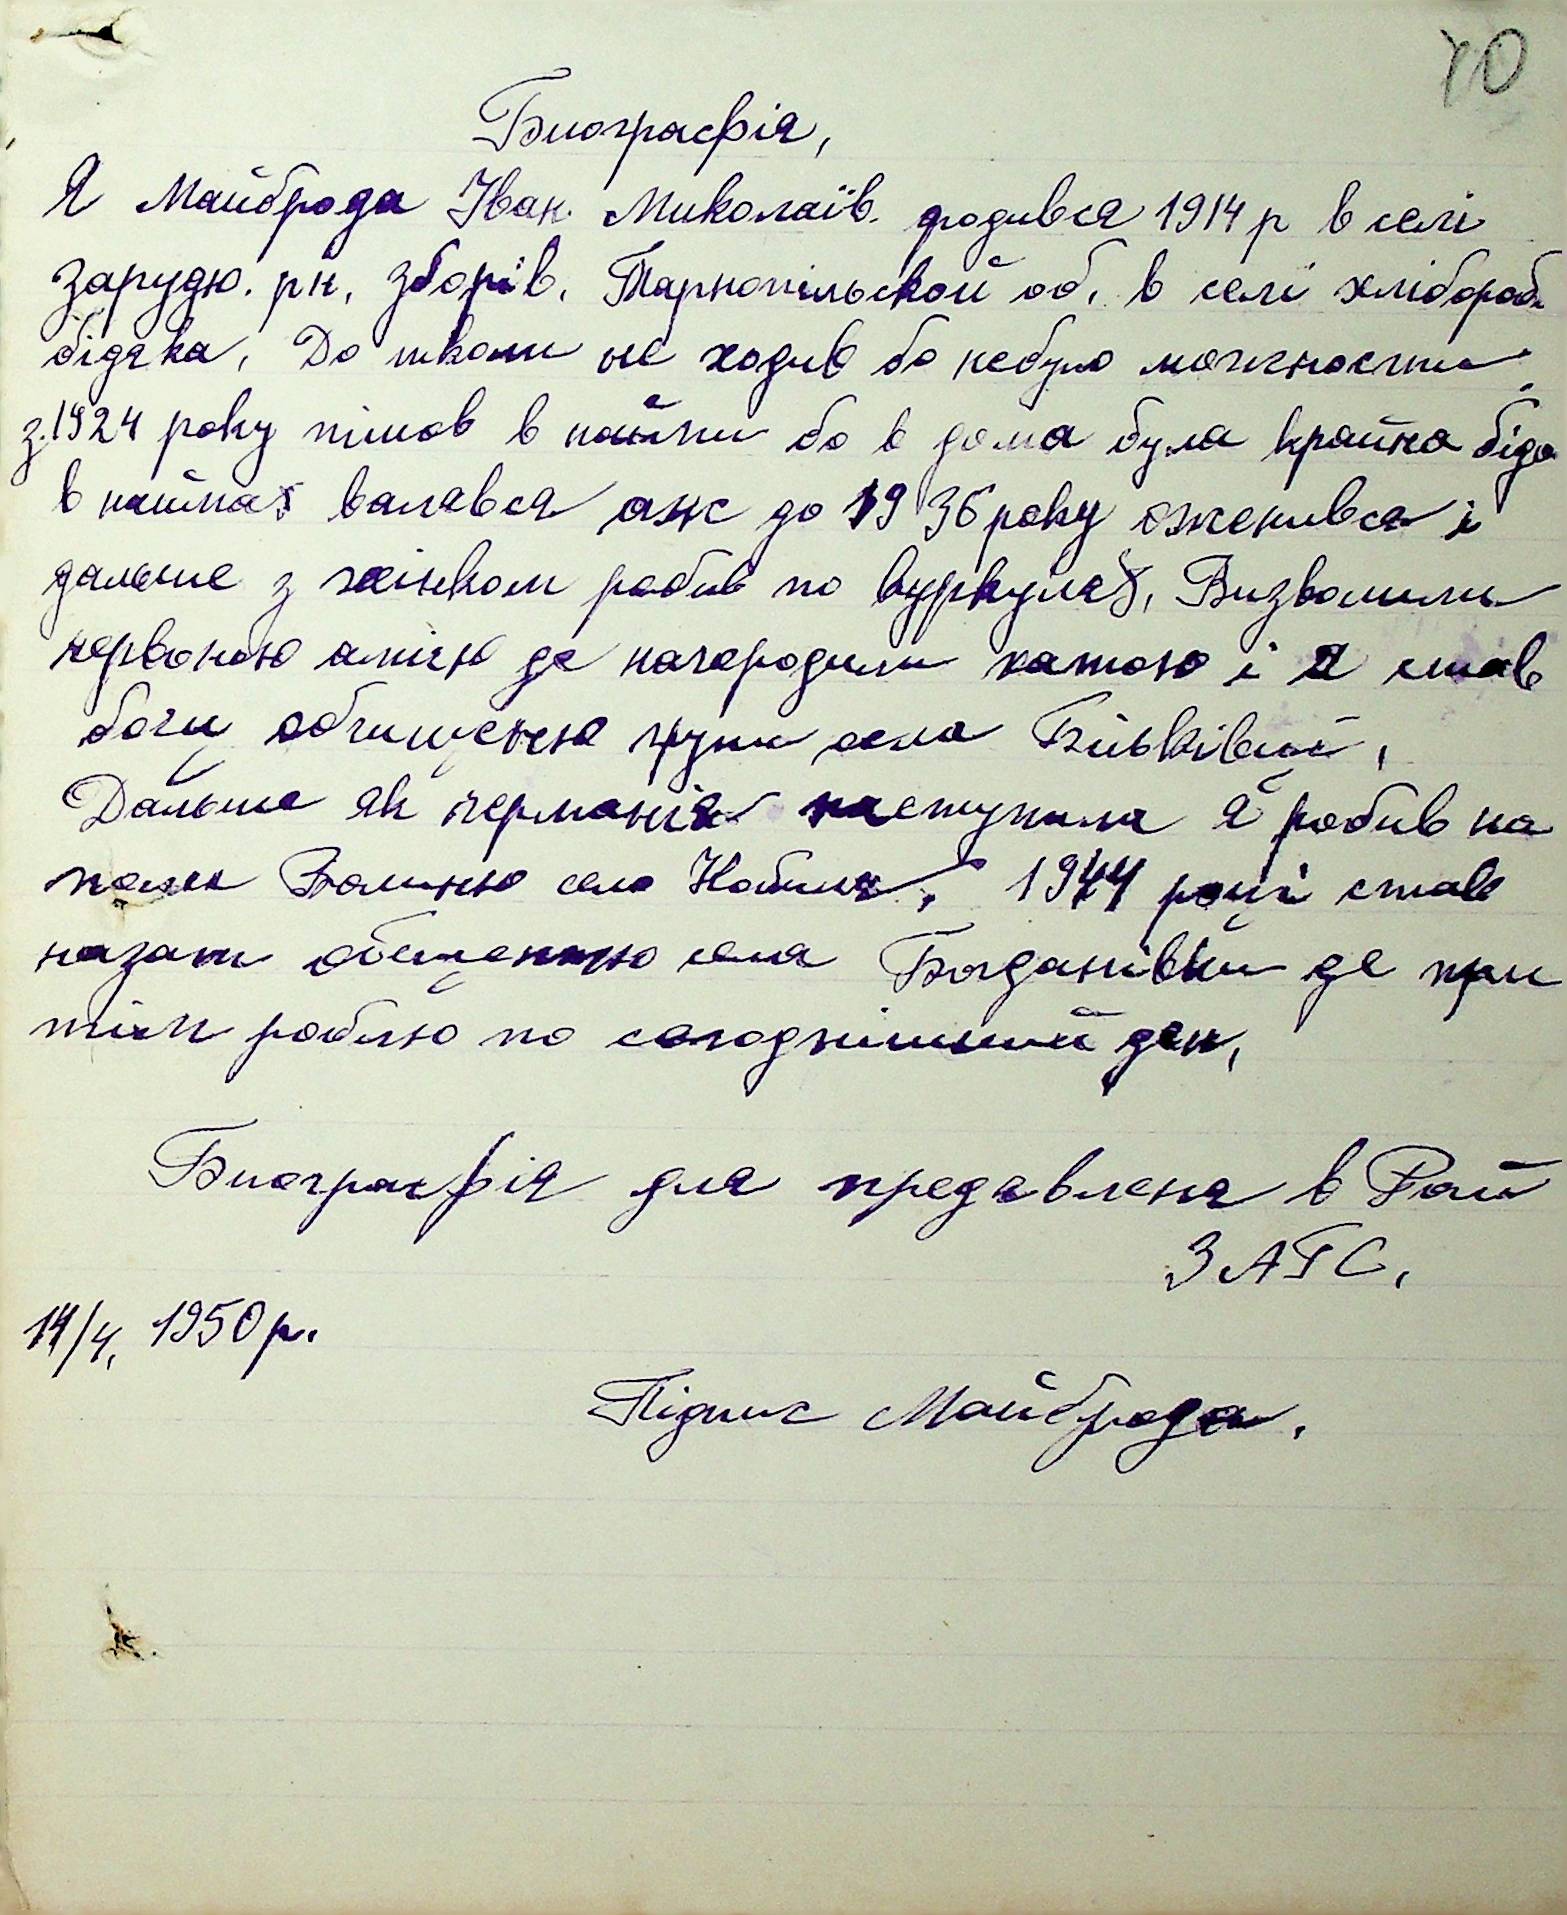 70
Биографія,
Я Майброда Іван. Миколаїв. родився 1914 р в селі
Зарудю. рн. Зборів. Тарнопільской об. в селі хлібороб
бідяка, До школи не ходив бо небуло можности
з.1924 року пішов в найми бо в дома була крайна біда
в наймах валявся аж до 1936 року оженився і
дальше з жінком робив по куркулях, Визволили
червоною армію де нагородили хатою і я став
богу обчищеная групи села Більківці,
Дальше як германія наступила я робив на
поляк Волинню село Кобиля, 1944 році став
назат обещению села Богданівки де при
тім роблю по согоднішний ден,
Биографія для предявленя в Рай
ЗАГС,
14/4, 1950 р.
Підпис Майброда.